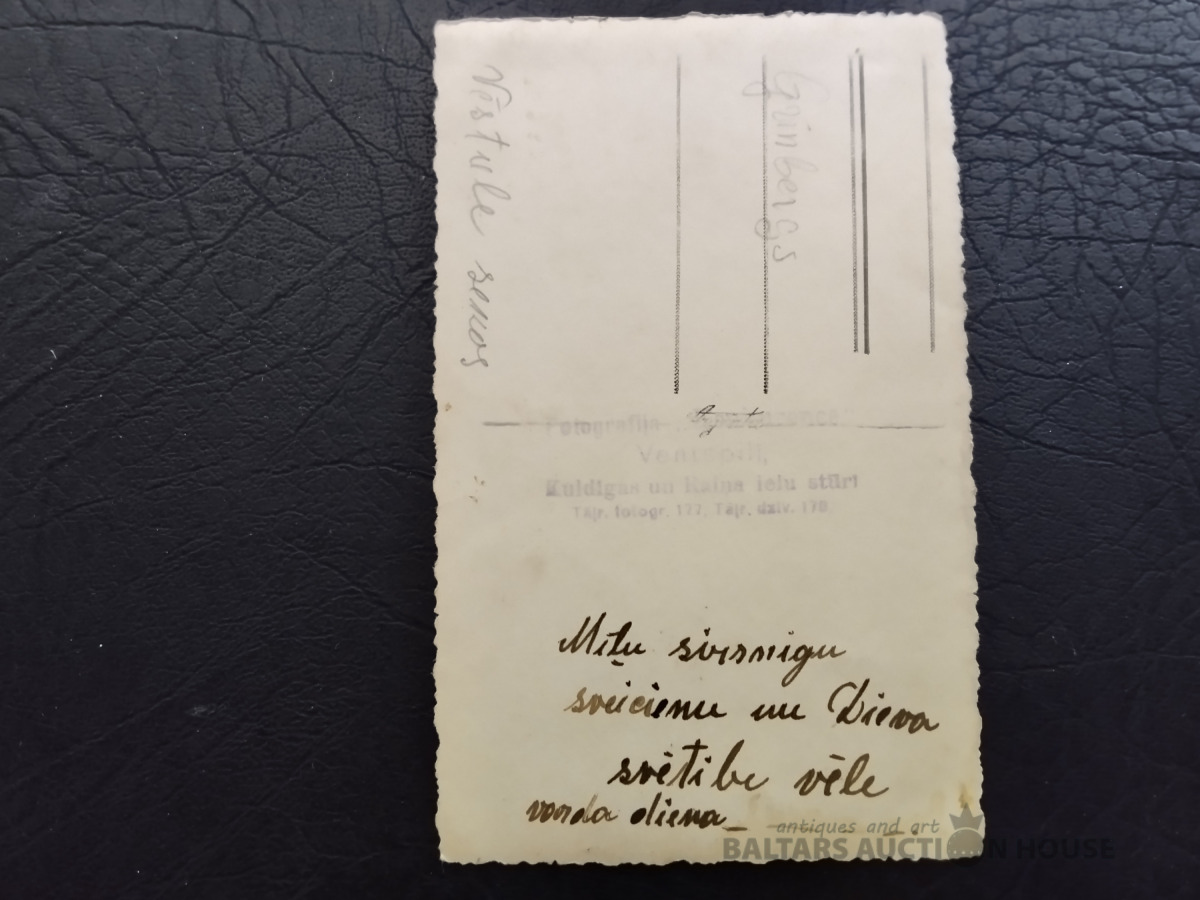 Vēstule senos
Grinbergs
Fotografija
Ventspilī,
Kuldigas un Raiņa ielu stūrī
Tājr. fotogr. 177, Tājr. dzīv. 170
Mīļu sirsnigu
sveicienu un Dieva
svētibu vēle
vārda diena
antiques and art
BALTARS AUCTION HOUSE